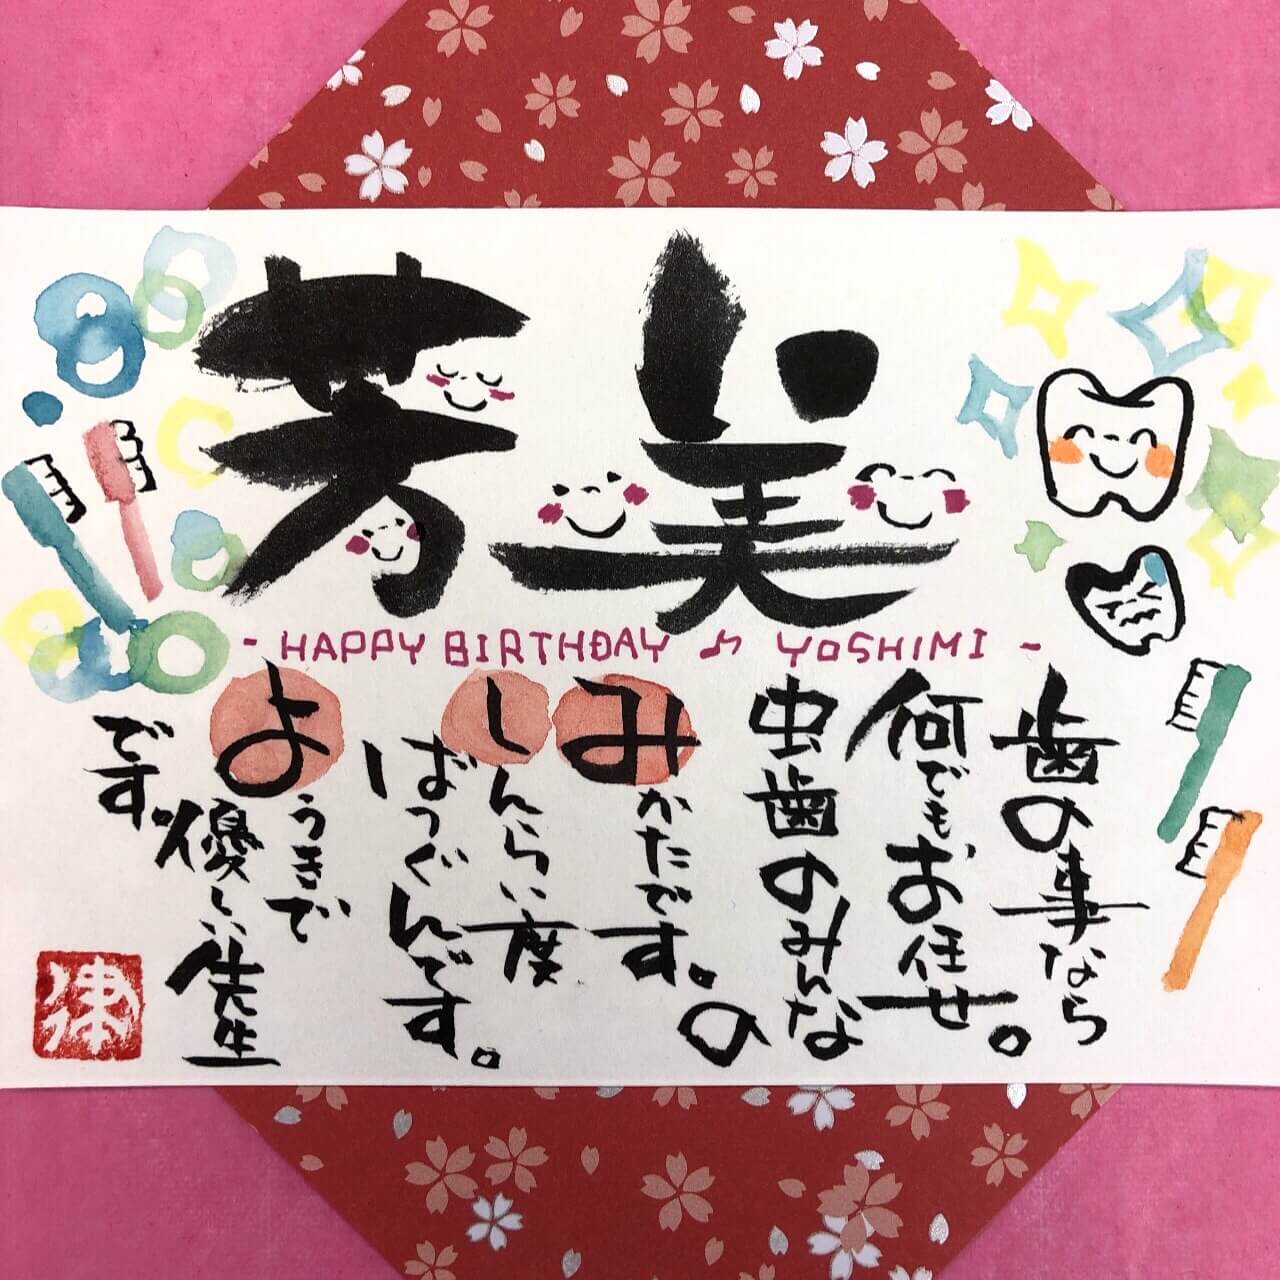 芳美
- HAPPY BIRTHDAY ♪ YOSHIMI -
歯の事なら
何でもお任せ。
虫歯のみんな
の
みかたです。
しんらい度
ばつぐんです。
ようきで
優しい先生
です。
津